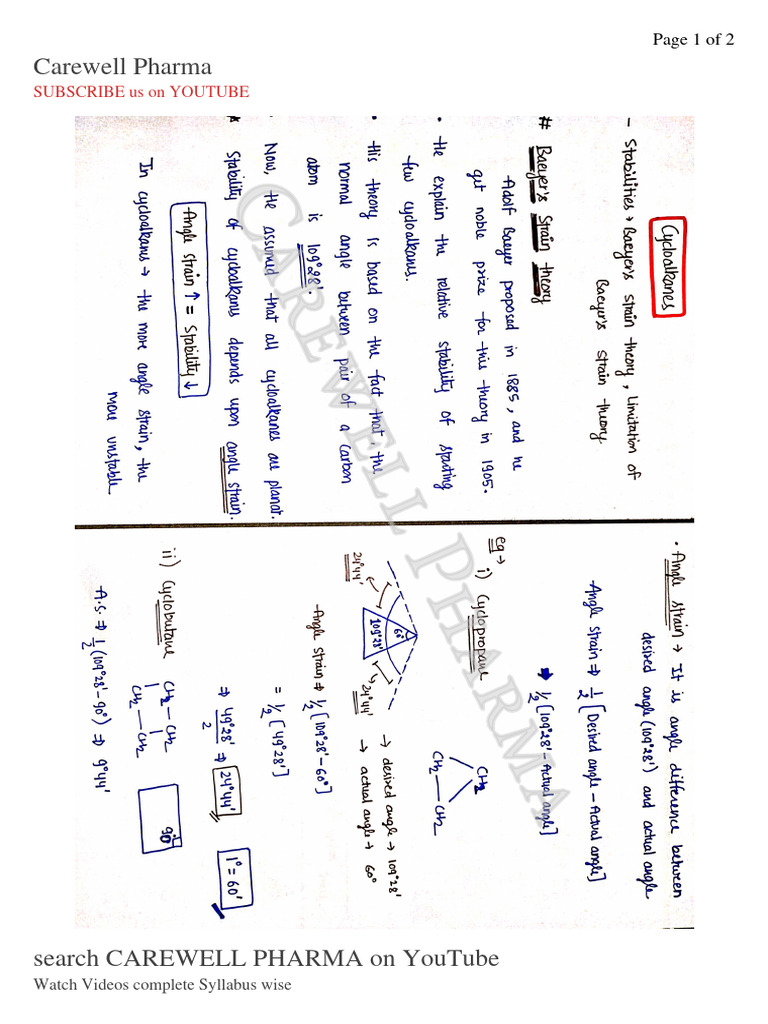 Page 1 of 2
Carewell Pharma
SUBSCRIBE us on YOUTUBE
Cycloalkanes
- Stabilities → Baeyer's strain theory, limitation of
Baeyer's strain theory.
# Baeyer's Strain theory
Adolf Baeyer proposed in 1885, and he
get noble prize for this theory in 1905.
• He explain the relative stability of starting
few cycloalkanes.
• His theory is based on the fact that, the
normal angle between pair of a carbon
atom is 109°28'.
Now, He assumed that all cycloalkanes are planar.
* Stability of cycloalkanes depends upon angle strain.
Angle strain ↑ = Stability ↓
In cycloalkanes → the more angle strain, the
more unstable
• Angle strain → It is angle difference between
desired angle (109°28') and actual angle
Angle strain ⇒ 1/2 [Desired angle - Actual angle]
⇒ 1/2 [109°28' - Actual angle]
eg → i) Cyclopropane
CH2
CH2 — CH2
60°
109°28'
24°44'
24°44'
→ desired angle → 109°28'
→ actual angle → 60°
Angle strain ⇒ 1/2 [109°28' - 60°]
= 1/2 [49°28']
⇒ 49°28'/2 ⇒ 24°44'
1° = 60'
ii) Cyclobutane
CH2 — CH2
CH2 — CH2
90°
A.S. ⇒ 1/2 (109°28' - 90°) ⇒ 9°44'
CAREWELL PHARMA
search CAREWELL PHARMA on YouTube
Watch Videos complete Syllabus wise